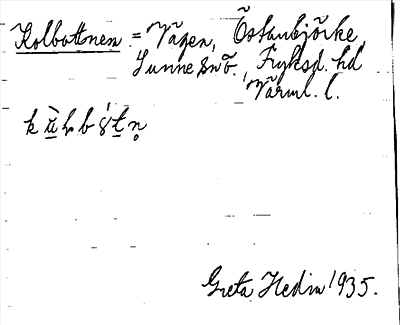 Kolbottnen = Vägen, Östanbjörke,
Sunne sn o., Fryksd. hd
Värml. l.
Greta Hedin 1935.